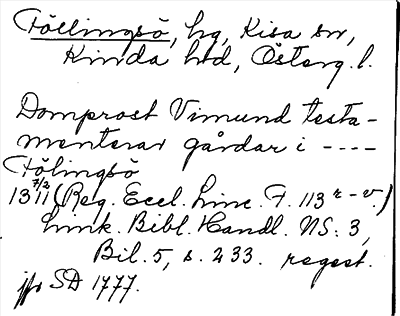 Föllingsö, hg, Kisa sn,
Kinda hd, Österg. l.
Domprost Vimund testa-
menterar gårdar i ----
Fölingsö
13 7/2 11 (Reg. Eccl. Linc. F. 113 r-v.)
Link. Bibl. Handl. NS. 3,
Bil. 5, s. 233. regest.
jfr SD 1777.